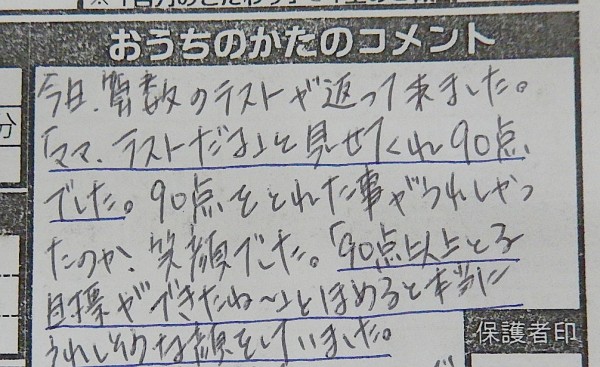 おうちのかたのコメント
今日、算数のテストが返って来ました。
「ママ、テストだよ」と見せてくれ90点
でした。90点をとれた事がうれしかっ
たのか、笑顔でした。「90点以上とる
目標ができたね〜」とほめると本当に
うれしそうな顔をしていました。
保護者印
分